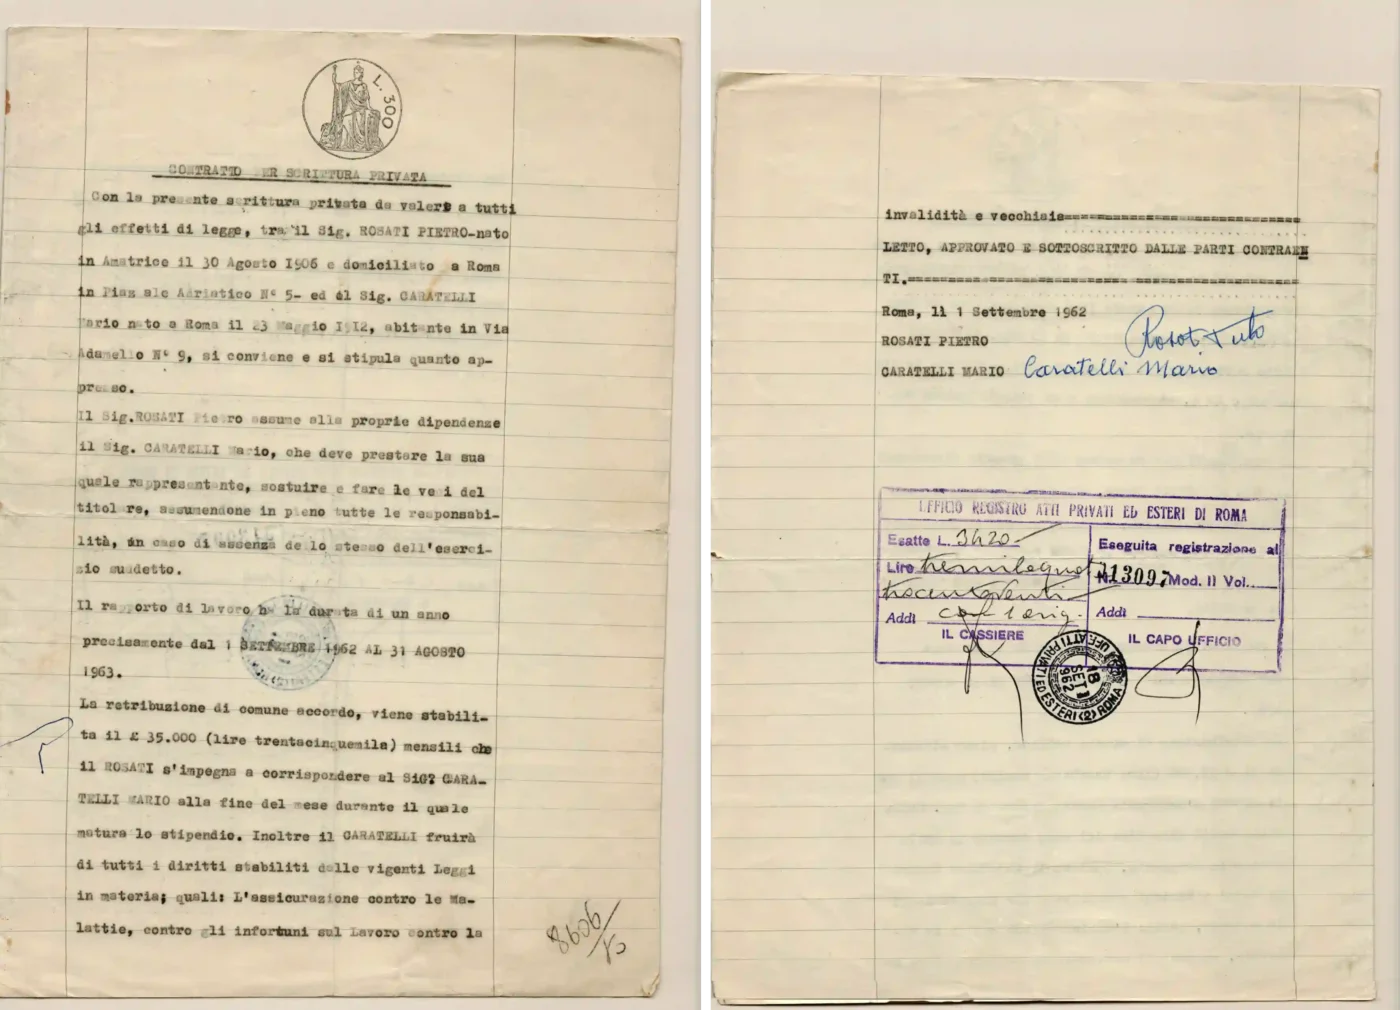 L. 300
CONTRATTO PER SCRITTURA PRIVATA
Con la presente scrittura privata da valere a tutti
gli effetti di legge, tra il Sig. ROSATI PIETRO-nato
in Amatrice il 30 Agosto 1906 e domiciliato a Roma
in Piazzale Adriatico N° 5- ed il Sig. CARATELLI
Mario nato a Roma il 23 Maggio 1912, abitante in Via
Adamello N° 9, si conviene e si stipula quanto ap-
presso.
Il Sig.ROSATI Pietro assume alle proprie dipendenze
il Sig. CARATELLI Mario, che deve prestare la sua
quale rappresentante, sostuire e fare le veci del
titolare, assumendone in pieno tutte le responsabi-
lità, in caso di assenza de lo stesso dell'eserci-
zio suddetto.
Il rapporto di lavoro ha la durata di un anno
precisamente dal 1 SETTEMBRE 1962 AL 31 AGOSTO
1963.
La retribuzione di comune accordo, viene stabili-
ta il £ 35.000 (lire trentacinquemila) mensili che
il ROSATI s'impegna a corrispondere al SIG? CARA-
TELLI MARIO alla fine del mese durante il quale
matura lo stipendio. Inoltre il CARATELLI fruirà
di tutti i diritti stabiliti dalle vigenti Leggi
in materia; quali: L'assicurazione contro le Ma-
lattie, contro gli infortuni sul Lavoro contro la
8606/
invalidità e vecchiaia==============================
LETTO, APPROVATO E SOTTOSCRITTO DALLE PARTI CONTRAEN
TI.=================================================
Roma, li 1 Settembre 1962
ROSATI PIETRO
CARATELLI MARIO Caratelli Mario
UFFICIO REGISTRO ATTI PRIVATI ED ESTERI DI ROMA
Esatte L. 3420
Lire tremilaquat
trocentoventi
Addì
IL CASSIERE
Eseguita registrazione al
N. 13097 Mod. II Vol.
Addì
IL CAPO UFFICIO
UFF. ATTI PRIVATI ED ESTERI (2) ROMA
18 SET 1962